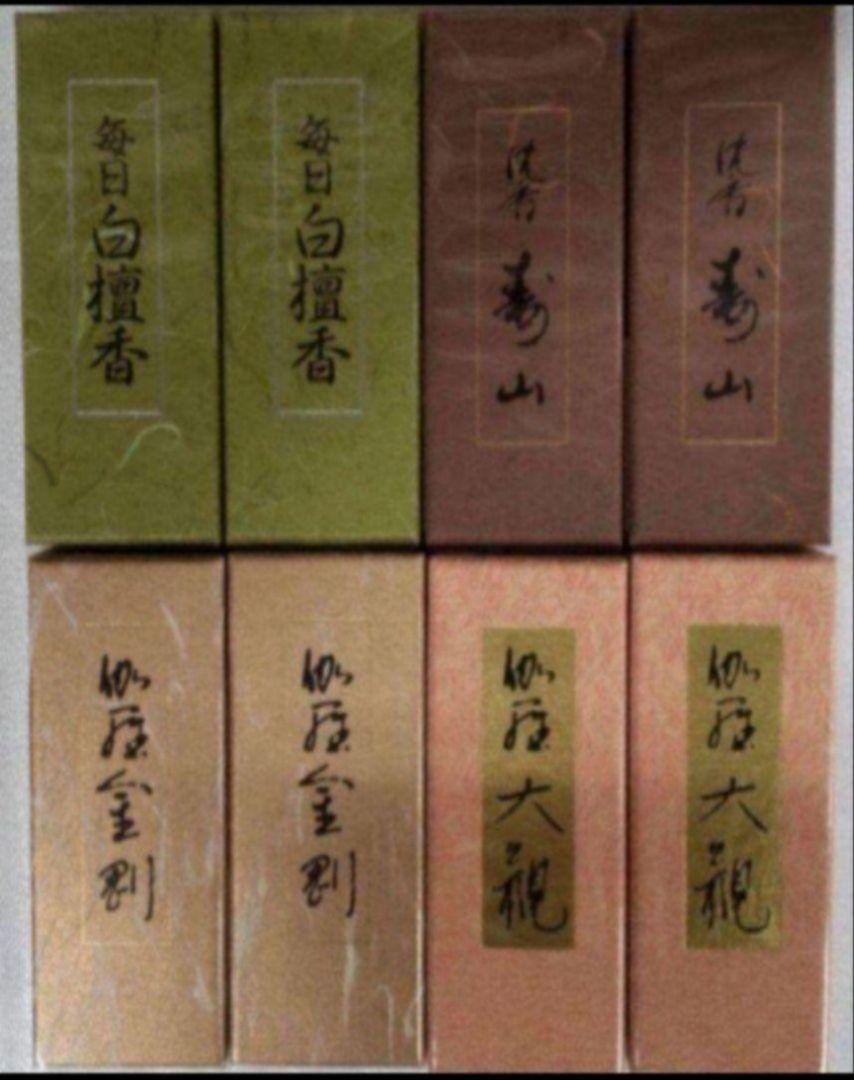 毎日白檀香
毎日白檀香
沈香 寿山
沈香 寿山
伽羅金剛
伽羅金剛
伽羅大観
伽羅大観